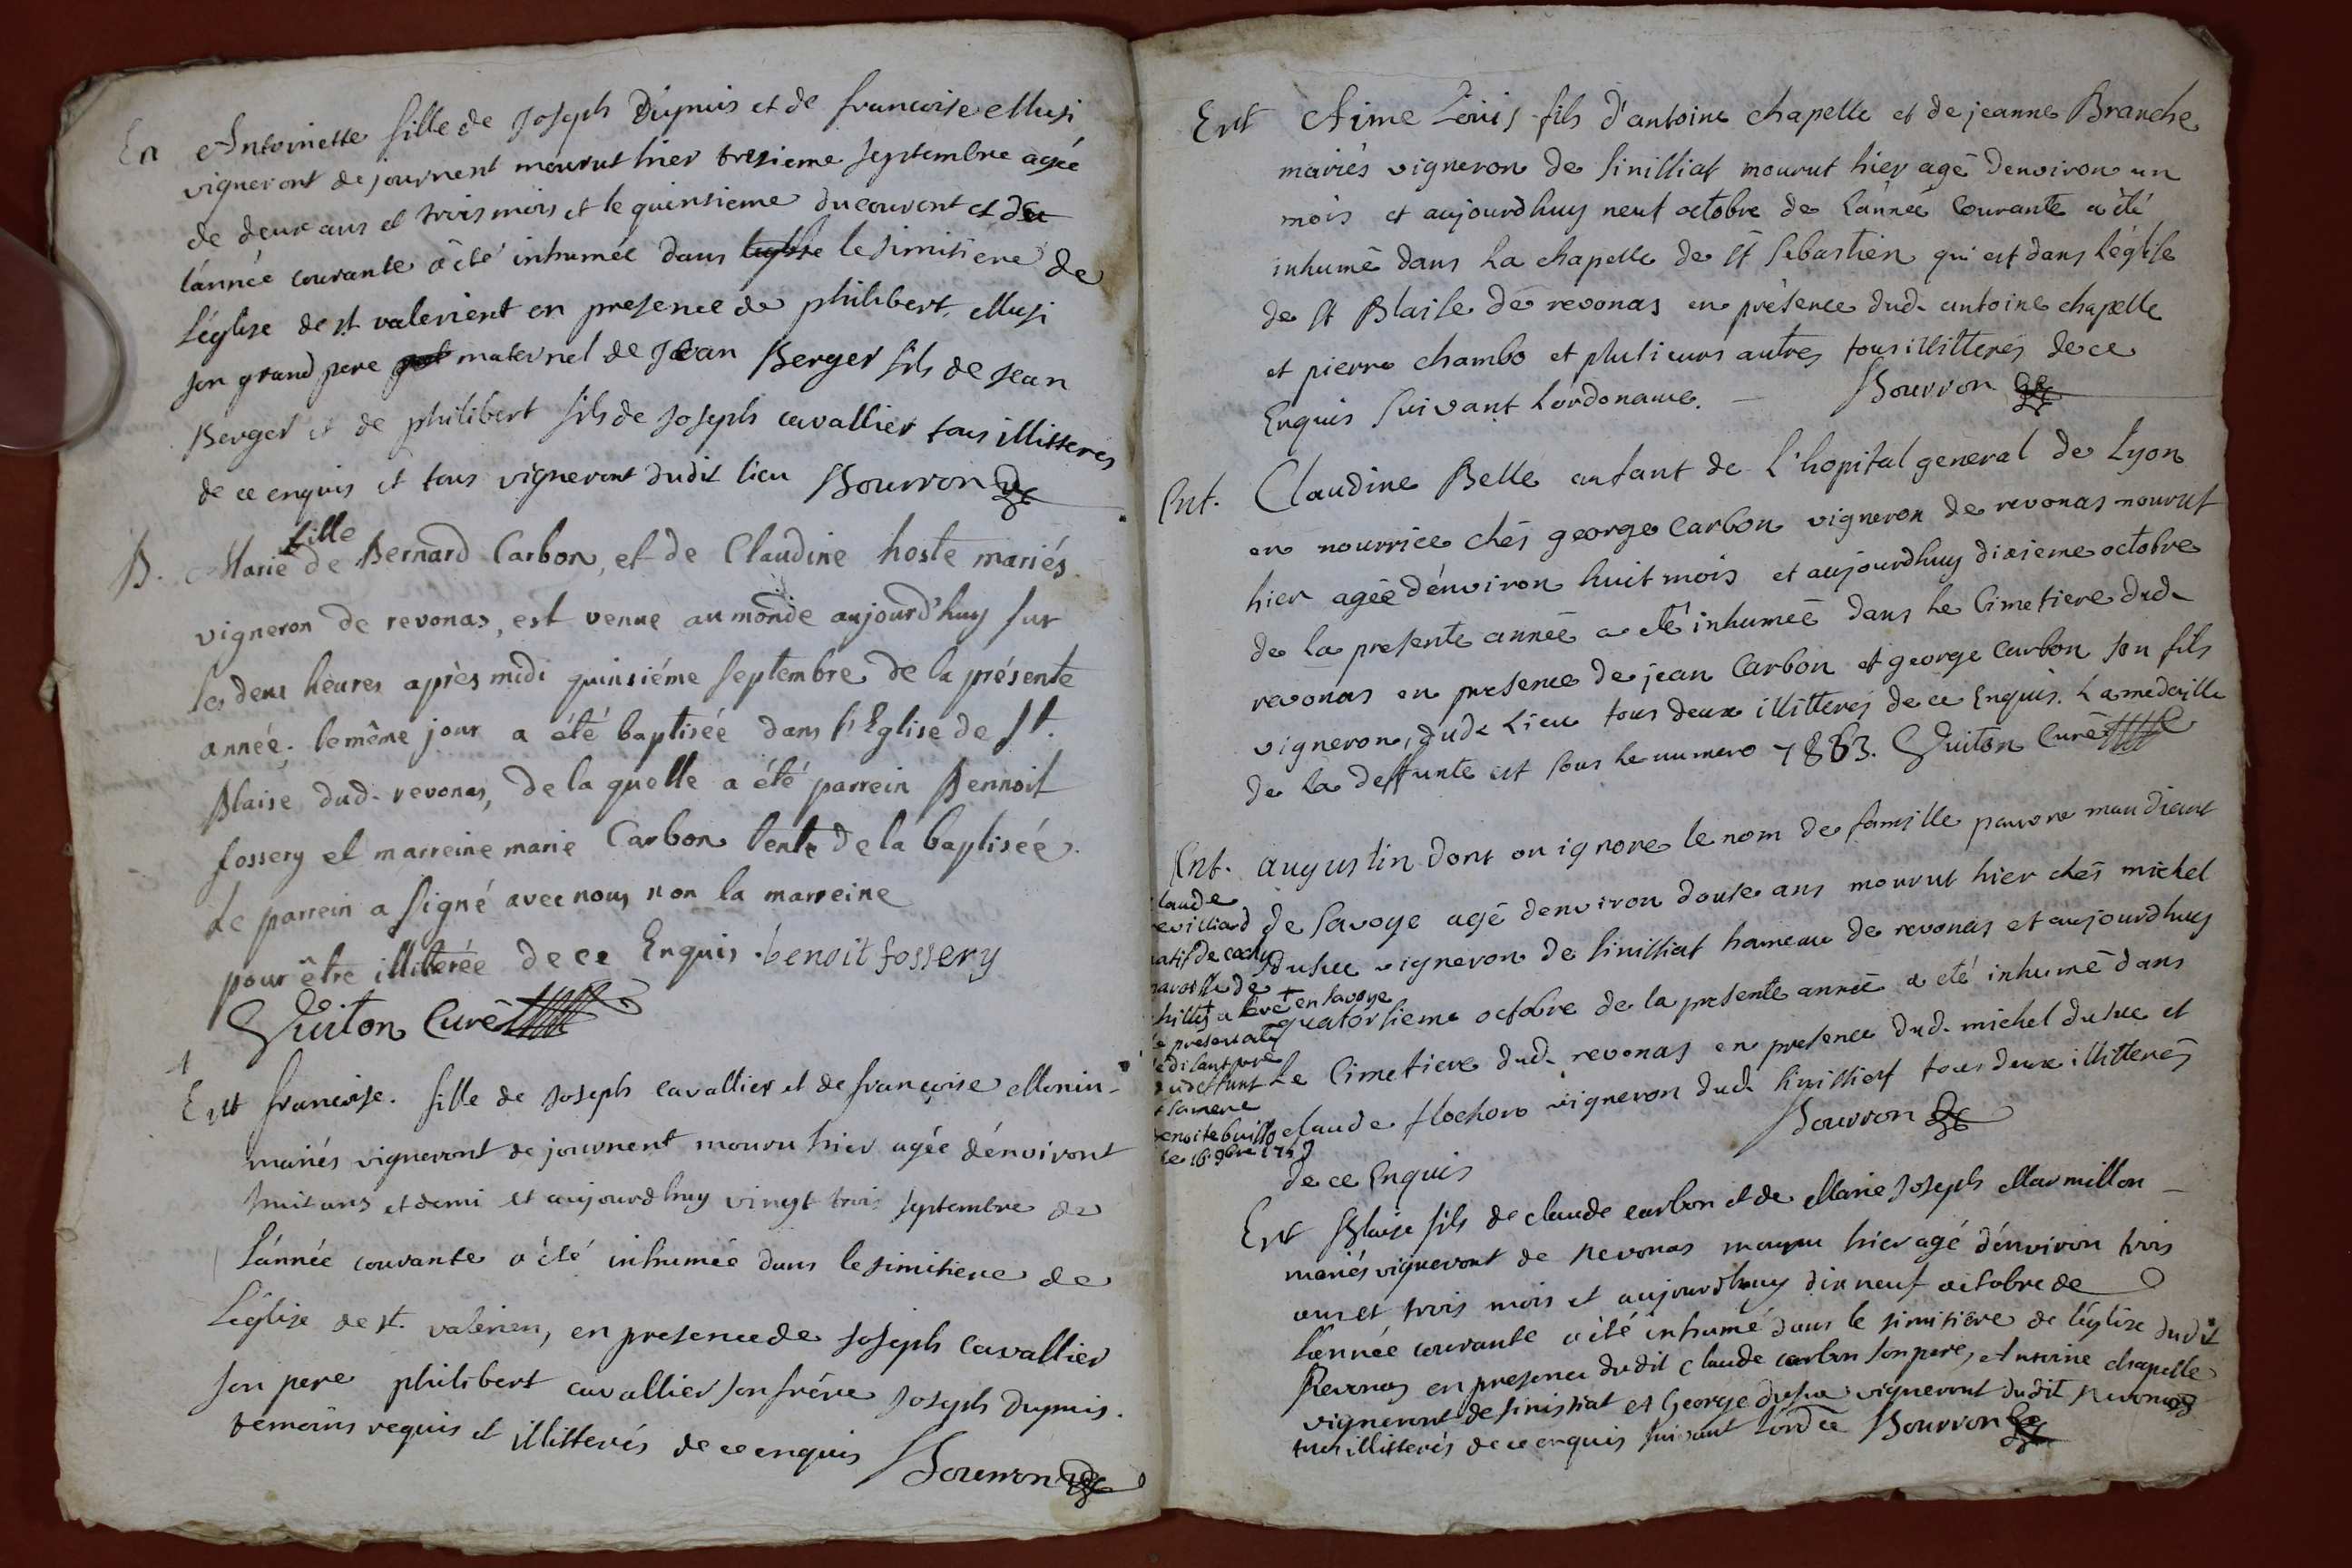 En Antoinette fille de Joseph Dupuis et de francoise Musi
vigneront de journent mourut hier tresieme septembre agée
de deux ans et trois mois et le quinsieme du courent et de
l'année courante a été inhumée dans leglise le simitiere de
l'église de st valerient en presence de philibert Musi
son grand pere maternel de Jean Berger fils de Jean
Berger et de philibert fils de Joseph cavallier tous illitteres
de ce enquis et tous vigneront dudit lieu Bourron
B. Marie fille de Bernard Carbon, et de Claudine hoste mariés
vigneron de revonas, est venue au monde aujourd'huy sur
les deux heures après midi quinsiéme septembre de la présente
année. le même jour a été baptisée dans l'Eglise de St.
Blaise dud. revonas, de la quelle a été parrein Bennoit
fossery et marreine marie Carbon tente de la baptisée.
Le parrein a signé avec nous non la marreine
pour être illiterée de ce Enquis. benoit fossery
Guiton Curé
Ent francoise. fille de Joseph cavallier et de françoise Monin
mariés vigneront de journent mouru hier agée d'environt
huit ans et demi et aujourdhuy vingt trois septembre de
l'année courante a été inhumée dans le simitiere de
l'église de st. valerien, en presence de Joseph cavallier
son pere philibert cavallier son frére Joseph Dupuis.
temoins requis et illitterés de ce enquis Bourron
Ent Aime Louis fils d'antoine chapelle et de jeanne Branche
mariés vigneron de Sinilliat mourut hier agé denviron un
mois et aujourdhuy neuf octobre de l'année Courante a été
inhumé dans la chapelle de st Sebastien qui est dans l'église
de st Blaise de revonas en présence dud. antoine chapelle
et pierre chambo et plusieurs autres tous illitterés de ce
Enquis suivant lordonance. Bourron
Ent. Claudine Belle enfant de l'hopital general de Lyon
en nourrice chés george Carbon vigneron de revonas mourut
hier agée d'environ huit mois et aujourdhuy dixieme octobre
de la presente année a été inhumée dans le Cimetiere dud.
revonas en presence de jean Carbon et george Carbon son fils
vigneron, dud. Lieu tous deux illitterés de ce Enquis. La medaille
de la deffunte est sous le numero 7883. Guiton Curé
Ent. augustin dont on ignore le nom de famille pauvre mandiant
de Savoye agé denviron douse ans mourut hier chés michel
dusuc vigneron de sinilliat hameau de revonas et aujourdhuy
quatorsieme octobre de la presente année a été inhumé dans
le Cimetiere dud. revonas en presence dud. michel dusuc et
claude flochon vigneron dud. sinilliat tous deux illitterés
de ce Enquis Bourron
laude
revilliard
natif de
paroisse de
en Savoye
le present acte
se disant pere
du deffunt
et sa mere
le 16. 9bre
Ent Blaise fils de claude carbon et de Marie Joseph Marmillon
mariés vigneront de Revonas mouru hier agé d'environ trois
ans et trois mois et aujourdhuy dix neuf octobre de
l'année courante a été inhumé dans le simitiere de l'église dudit
Revonas en presence dudit claude carbon son pere, Antoine chapelle
vigneront de sinissiat et George dusuc vigneront dudit Revonas
tous illitterés de ce enquis suivant lord.ce Bourron